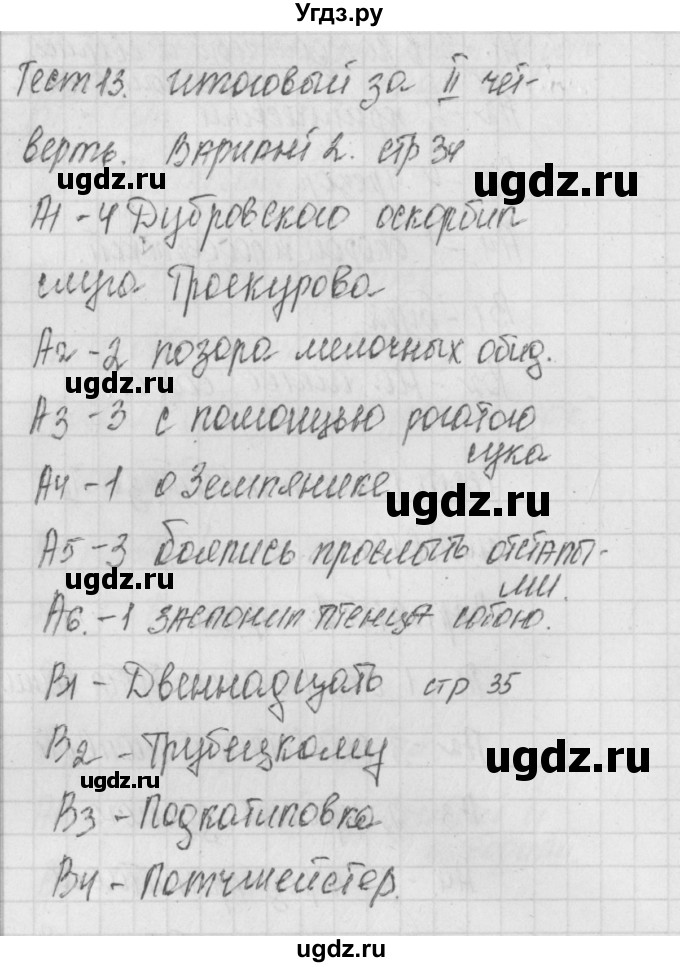 Угдз.ру
Тест 13. итоговый за II чет-
верть. Вариант 2. стр 34
ugdz.ru ugdz.ru
А1 - 4 Дубровского оскорбил
слуга Троекурова
ugdz.ru
А2 - 2 позора мелочных обид.
ugdz.ru
А3 - 3 с помощью рогатого
сука
А4 - 1 о Землянике
ugdz.ru
А5 - 3 боялись прослыть отсталы-
ugdz.ru ми.
А6. - 1 заслонил птенца собою.
ugdz.ru
В1 - Двеннадцать стр 35
В2 - Трубецкому
ugdz.ru ugdz.ru
В3 - Подкатиловка
В4 - Потчмейстер.
ugdz.ru